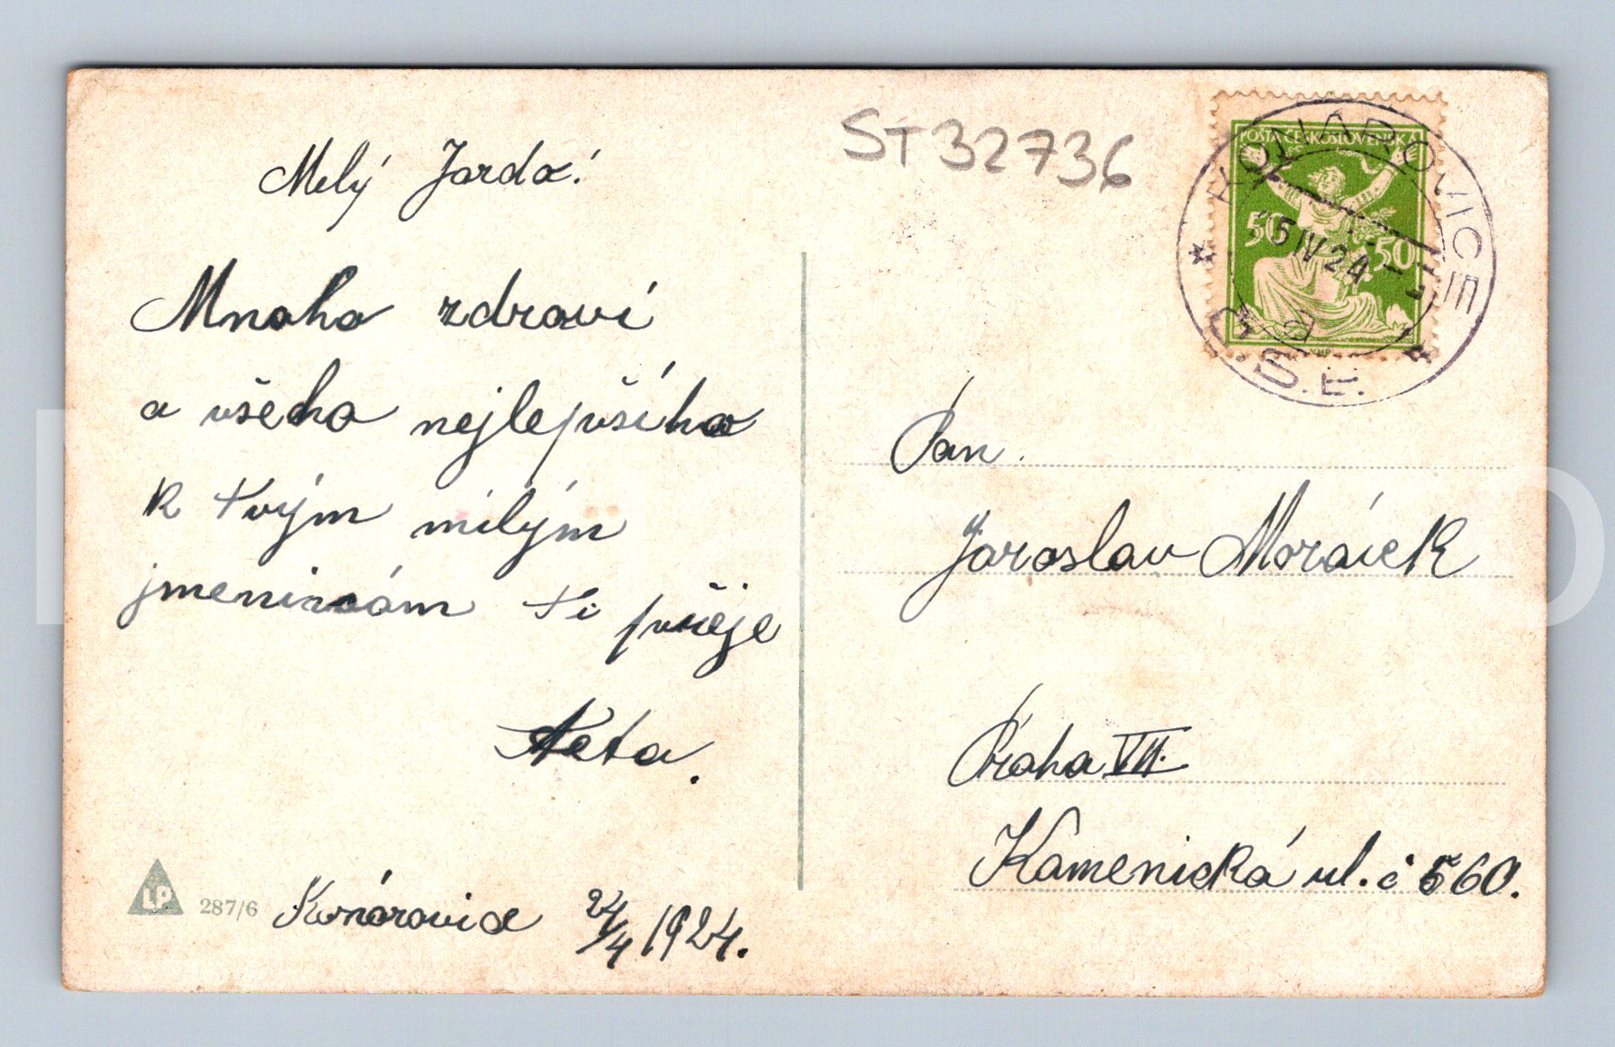 Milý Jarda!
Mnoho zdraví
a všeho nejlepšího
k tvým milým
jmeninám ti přeje
Neta.
LP 287/6
Konárovice 24/4 1924.
ST32736
POŠTA ČESKOSLOVENSKÁ
50 50
KONAROVICE
5 IV 24
Č.S.R.
Pan.
Jaroslav Morávek
Praha VII.
Kamenická ul. č 560.